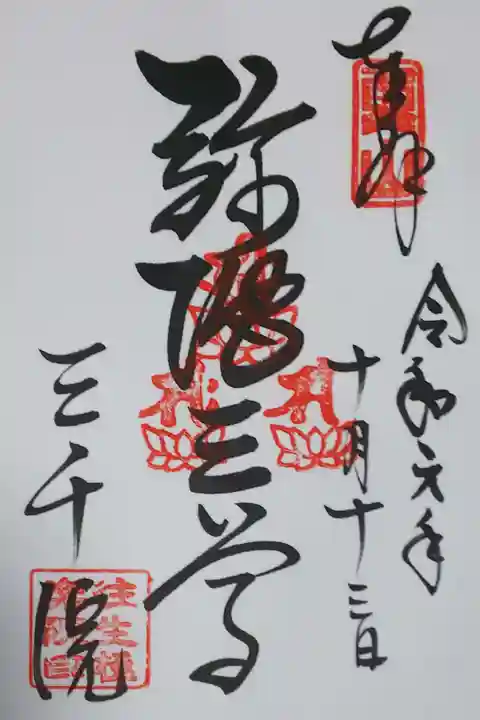 奉拝
令和元年
十月十三日
弥陀三尊
三千院